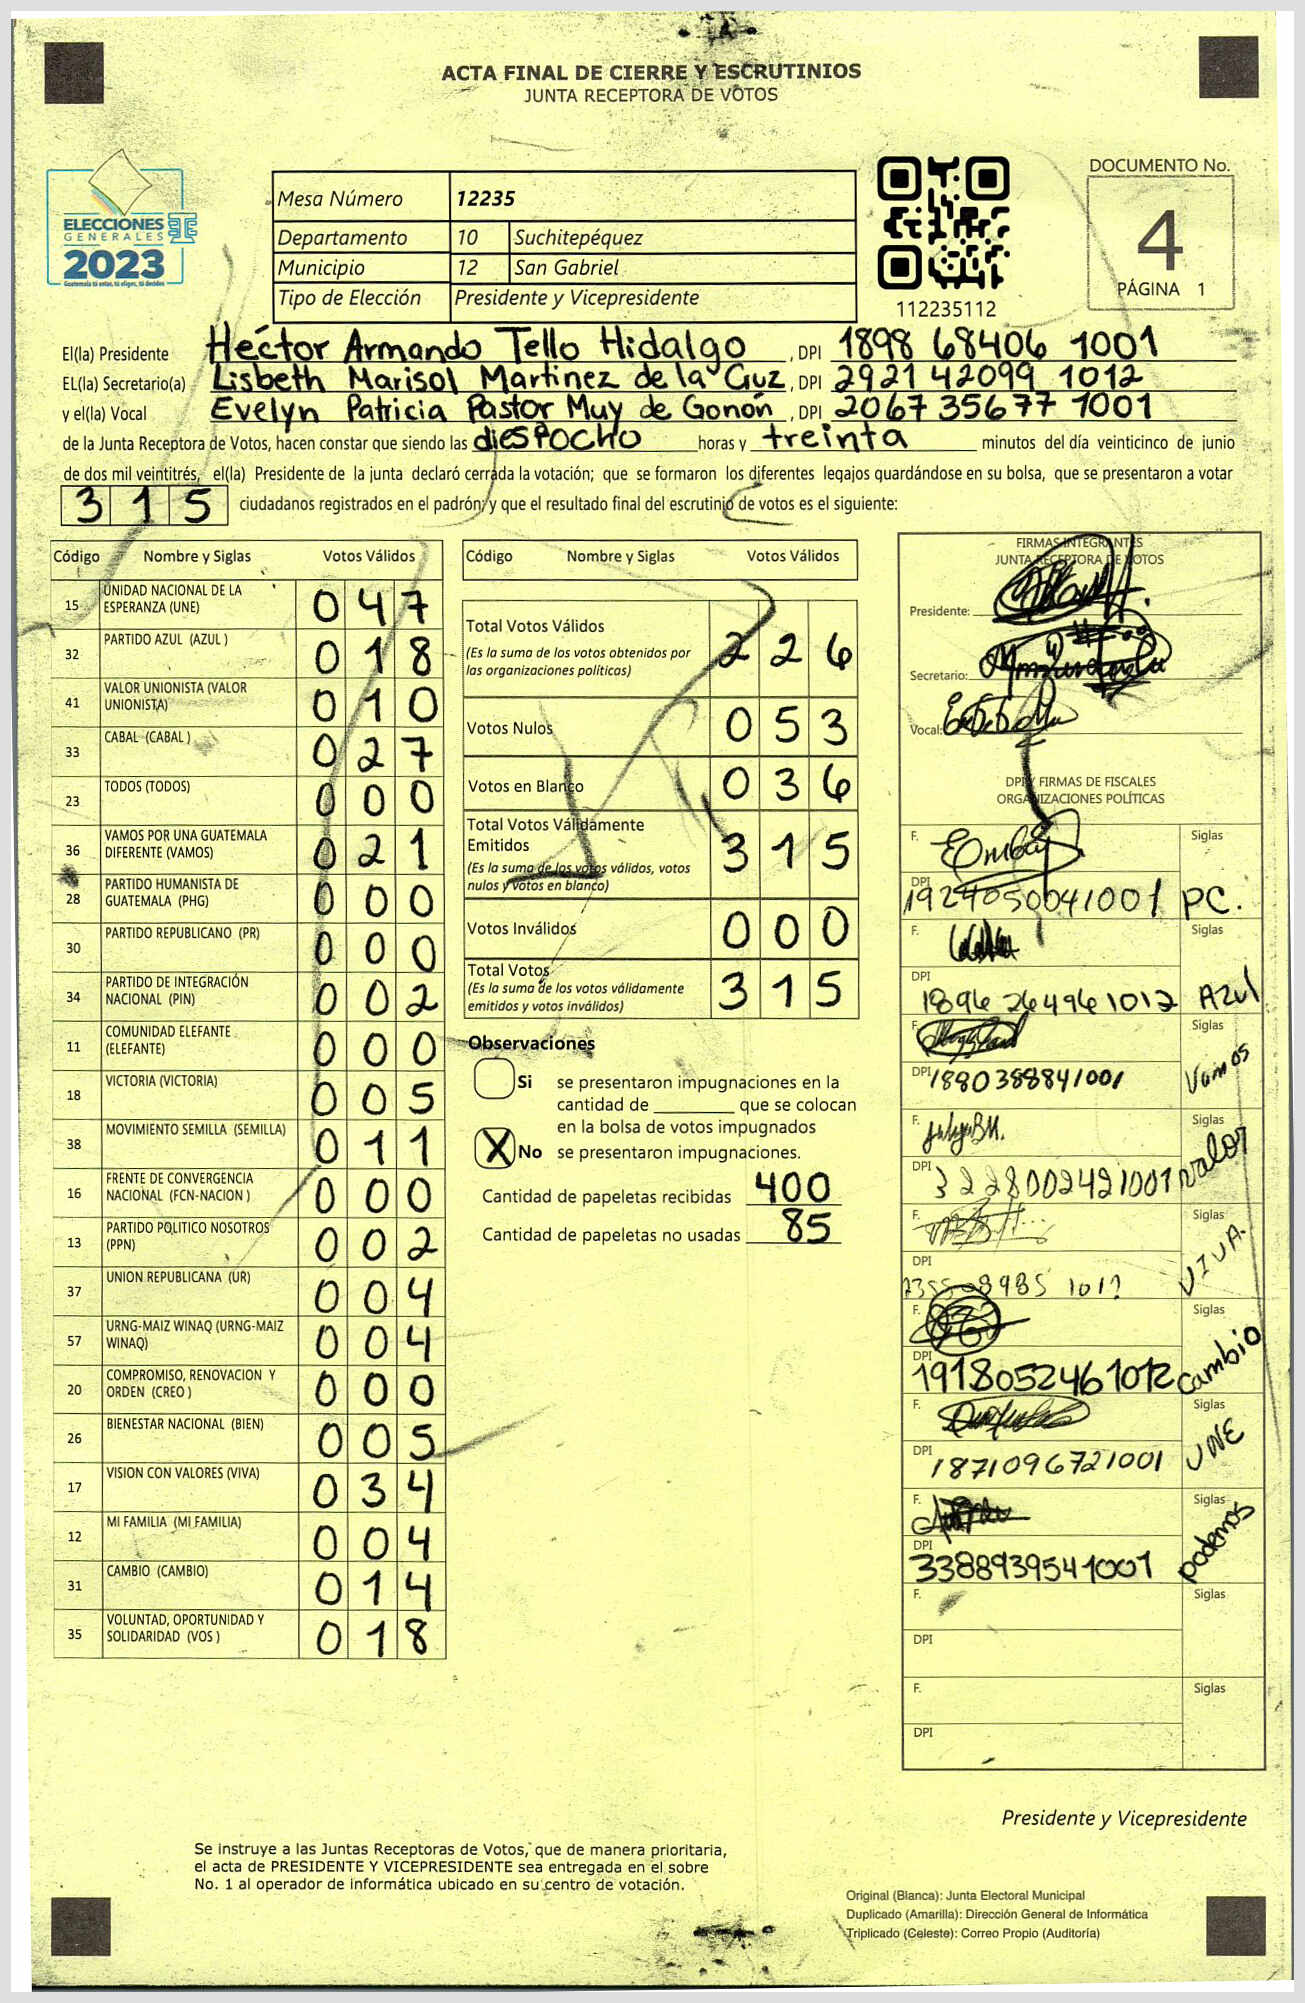 ACTA FINAL DE CIERRE Y ESCRUTINIOS
JUNTA RECEPTORA DE VOTOS
ELECCIONES
GENERALES
2023
Guatemala tú estás, tú eliges, tú decides
Mesa Número 12235
Departamento 10 Suchitepéquez
Municipio 12 San Gabriel
Tipo de Elección Presidente y Vicepresidente
112235112
DOCUMENTO No.
4
PÁGINA 1
El(la) Presidente Héctor Armando Tello Hidalgo, DPI 1898 68406 1001
EL(la) Secretario(a) Lisbeth Marisol Martinez de la Cruz, DPI 2921 42099 1012
y el(la) Vocal Evelyn Patricia Pastor Muy de Gonón, DPI 2067 35677 1001
de la Junta Receptora de Votos, hacen constar que siendo las diespocho horas y treinta minutos del día veinticinco de junio
de dos mil veintitrés, el(la) Presidente de la junta declaró cerrada la votación; que se formaron los diferentes legajos guardándose en su bolsa, que se presentaron a votar
315 ciudadanos registrados en el padrón; y que el resultado final del escrutinio de votos es el siguiente:
Código Nombre y Siglas Votos Válidos
15 UNIDAD NACIONAL DE LA ESPERANZA (UNE) 047
32 PARTIDO AZUL (AZUL ) 018
41 VALOR UNIONISTA (VALOR UNIONISTA) 010
33 CABAL (CABAL ) 027
23 TODOS (TODOS) 000
36 VAMOS POR UNA GUATEMALA DIFERENTE (VAMOS) 021
28 PARTIDO HUMANISTA DE GUATEMALA (PHG) 000
30 PARTIDO REPUBLICANO (PR) 000
34 PARTIDO DE INTEGRACIÓN NACIONAL (PIN) 002
11 COMUNIDAD ELEFANTE (ELEFANTE) 000
18 VICTORIA (VICTORIA) 005
38 MOVIMIENTO SEMILLA (SEMILLA) 011
16 FRENTE DE CONVERGENCIA NACIONAL (FCN-NACION ) 000
13 PARTIDO POLITICO NOSOTROS (PPN) 002
37 UNION REPUBLICANA (UR) 004
57 URNG-MAIZ WINAQ (URNG-MAIZ WINAQ) 004
20 COMPROMISO, RENOVACION Y ORDEN (CREO ) 000
26 BIENESTAR NACIONAL (BIEN) 005
17 VISION CON VALORES (VIVA) 034
12 MI FAMILIA (MI FAMILIA) 004
31 CAMBIO (CAMBIO) 014
35 VOLUNTAD, OPORTUNIDAD Y SOLIDARIDAD (VOS ) 018
Código Nombre y Siglas Votos Válidos
Total Votos Válidos 226
(Es la suma de los votos obtenidos por
las organizaciones políticas)
Votos Nulos 053
Votos en Blanco 036
Total Votos Válidamente
Emitidos 315
(Es la suma de los votos válidos, votos
nulos y votos en blanco)
Votos Inválidos 000
Total Votos 315
(Es la suma de los votos válidamente
emitidos y votos inválidos)
Observaciones
Si se presentaron impugnaciones en la
cantidad de ________ que se colocan
en la bolsa de votos impugnados
X No se presentaron impugnaciones.
Cantidad de papeletas recibidas 400
Cantidad de papeletas no usadas 85
FIRMAS INTEGRANTES
JUNTA RECEPTORA DE VOTOS
Presidente:
Secretario:
Vocal:
DPI Y FIRMAS DE FISCALES
ORGANIZACIONES POLÍTICAS
F. Siglas
DPI 1924050041001 PC.
F. Siglas
DPI 1896 26496 1012 Azul
F. Siglas
DPI 1880388841001 Vamos
F. Siglas
DPI 3228002421001 valor
F. Siglas
DPI VIVA.
F. Siglas
DPI 1918052461012 cambio
F. Siglas
DPI 1871096721001 UNE
F. Siglas
DPI 3388939541001 podemos
F. Siglas
DPI
F. Siglas
DPI
Presidente y Vicepresidente
Se instruye a las Juntas Receptoras de Votos, que de manera prioritaria,
el acta de PRESIDENTE Y VICEPRESIDENTE sea entregada en el sobre
No. 1 al operador de informática ubicado en su centro de votación.
Original (Blanca): Junta Electoral Municipal
Duplicado (Amarilla): Dirección General de Informática
Triplicado (Celeste): Correo Propio (Auditoría)